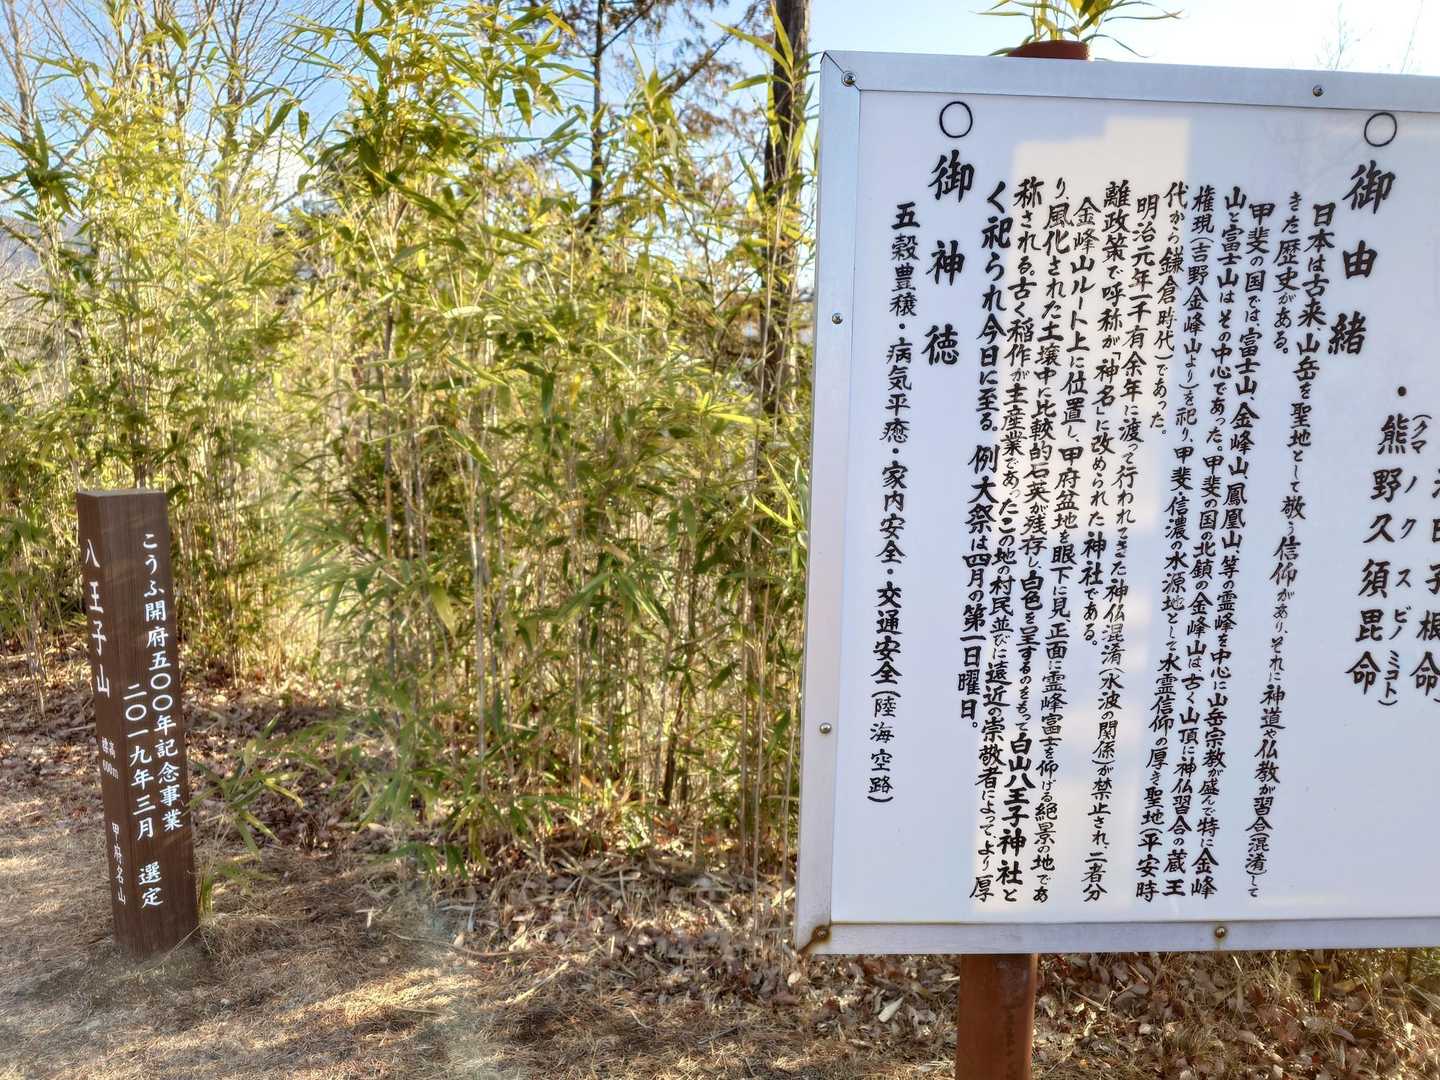 こうふ開府五〇〇年記念事業
二〇一九年三月 選定
八王子山
標高
甲府名山
・熊野久須毘命
(クマノクスビノミコト)
〇御由緒
日本は古来、山岳を聖地として敬う信仰があり、それに神道や仏教が習合(混淆)して
きた歴史がある。
甲斐の国では富士山、金峰山、鳳凰山、等の霊峰を中心に山岳宗教が盛んで特に金峰
山と富士山はその中心であった。甲斐の国の北鎮の金峰山は古く山頂に神仏習合の蔵王
権現(吉野金峰山より)を祀り、甲斐、信濃の水源地として水霊信仰の厚き聖地(平安時
代から鎌倉時代)であった。
明治元年一千有余年に渡って行われてきた神仏混淆(水波の関係)が禁止され、二者分
離政策で呼称が「神名」に改められた神社である。
金峰山ルート上に位置し、甲府盆地を眼下に見、正面に霊峰富士を仰げる絶景の地であ
り風化された土壌中に比較的石英が残存し、白色を呈するのをもって白山八王子神社と
称される。古く稲作が主産業であったこの地の村民並びに遠近の崇敬者によって、より厚
く祀られ今日に至る。例大祭は四月の第一日曜日。
〇御神徳
五穀豊穣・病気平癒・家内安全・交通安全(陸海空路)